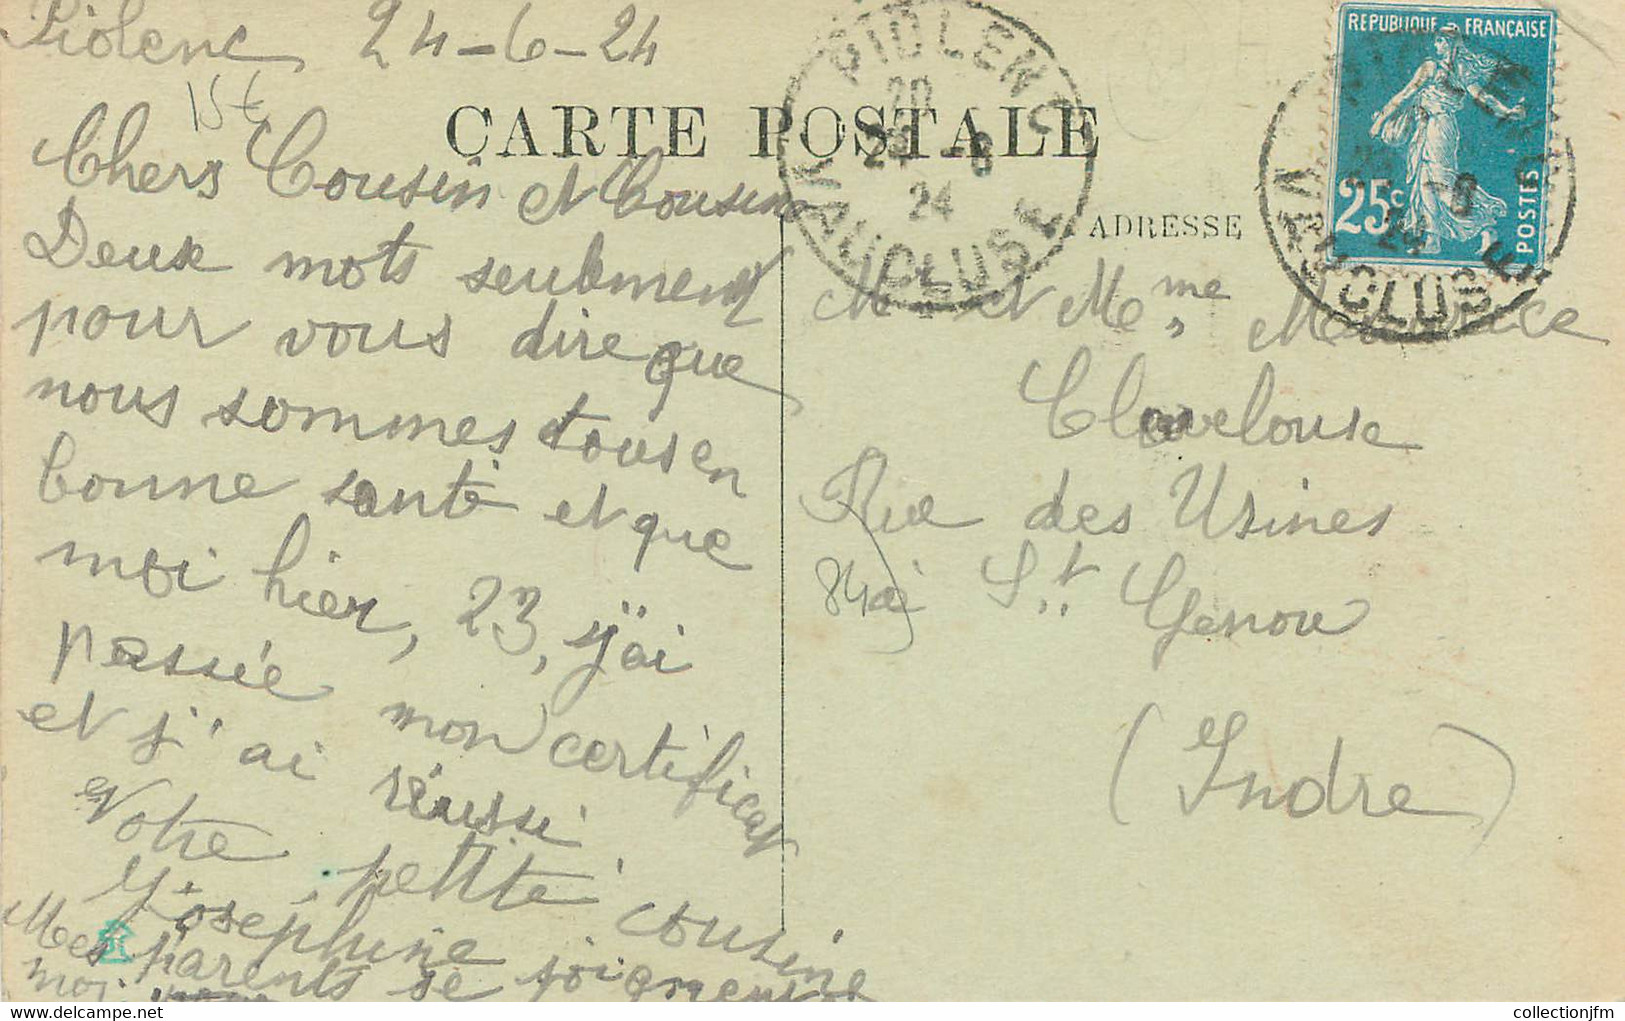 Piolenc 24-6-24
15€
CARTE POSTALE
Chers Cousin et Cousine
Deux mots seulement
pour vous dire que
nous sommes tous en
bonne santé et que
moi hier, 23, j'ai
passée mon certificat
et j'ai réussi
Votre petite cousine
Joséphine
Mes parents se joignent
moi
PIOLENC
20
25 -6
24
VAUCLUSE
REPUBLIQUE FRANÇAISE
25c
POSTES
PIOLENC
24
VAUCLUSE
ADRESSE
Mr et Mme Maurice
Clavelouse
Rue des Usines
St Genou
(Indre)
collectionjfm